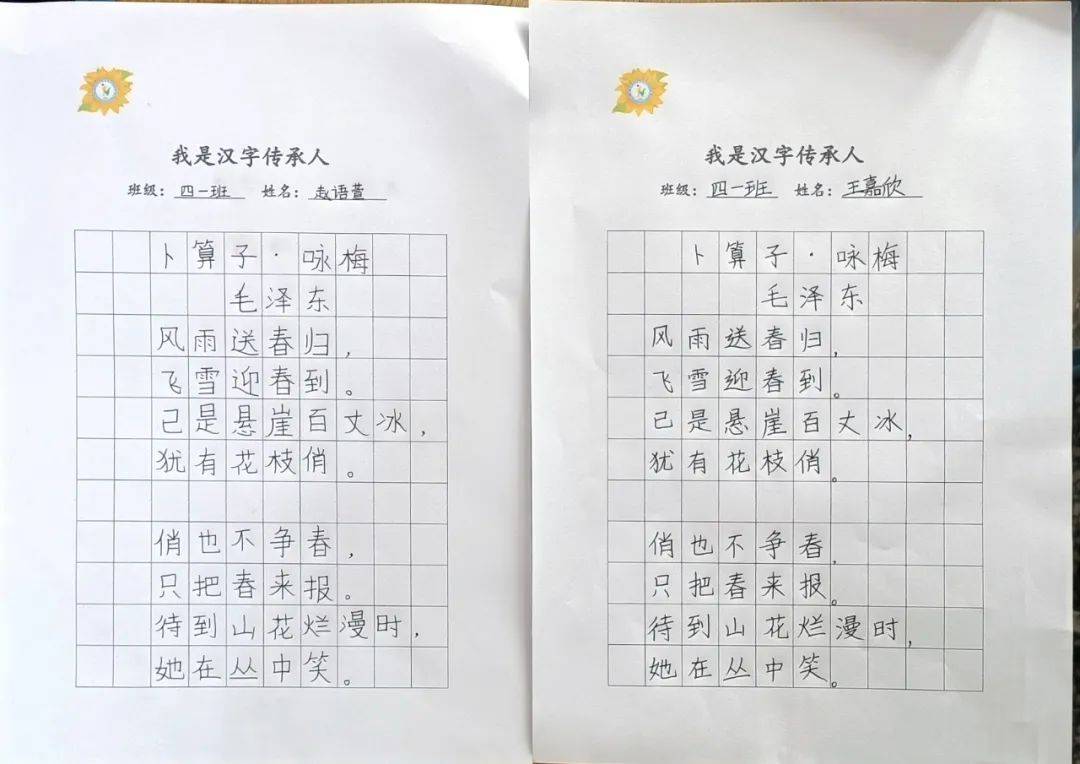 我是汉字传承人
班级：四一班 姓名：赵语萱
卜算子·咏梅
毛泽东
风雨送春归，
飞雪迎春到。
已是悬崖百丈冰，
犹有花枝俏。
俏也不争春，
只把春来报。
待到山花烂漫时，
她在丛中笑。
我是汉字传承人
班级：四一班 姓名：王嘉欣
卜算子·咏梅
毛泽东
风雨送春归，
飞雪迎春到。
已是悬崖百丈冰，
犹有花枝俏。
俏也不争春，
只把春来报。
待到山花烂漫时，
她在丛中笑。